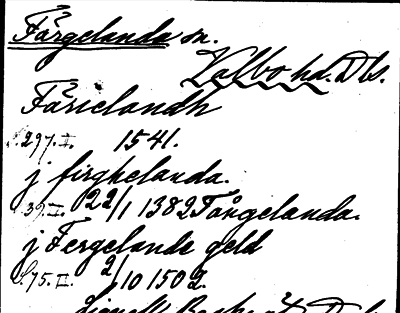 Färgelanda sn.
Valbo hd. Dls.
Färielandh
S. 297. II. 1541.
j firghelanda.
S. 39. II. 22/1 1382 Fångelanda.
j Fergelande geld
S. 75. II. 2/10 1502.
Lignells Beskr. öt. Dal